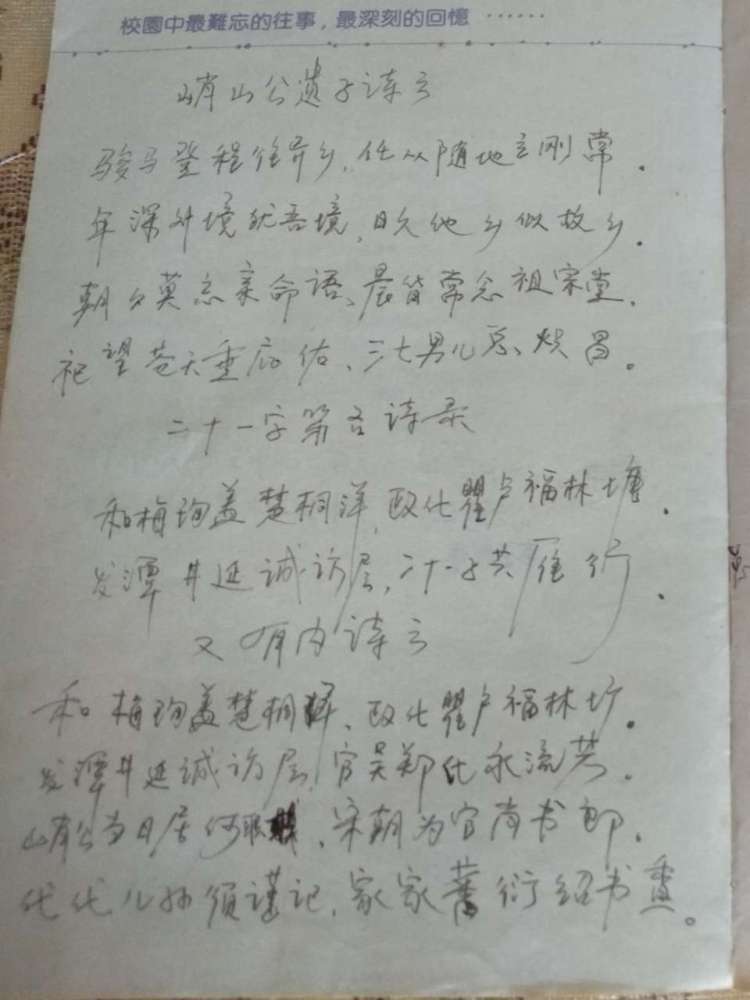 校園中最難忘的往事，最深刻的回憶 ……
峭山公遗子诗云
骏马登程往异乡，任从随地立刚常．
年深外境犹吾境，日久他乡似故乡．
朝夕莫忘亲命语、晨昏常念祖宗堂．
祀望苍天垂庇佑、三七男儿总炽昌。
二十一字第吾诗录
和梅珣盖楚桐洋，政化瞿卢福林塘．
发潭井延诚访层，二十一子共雁行．
又有内诗云
和梅珣盖楚桐洋、政化瞿卢福林圹．
发潭井延诚访层，官吴郑化永流芳．
峭公当日居何职，宋朝为官尚书郎．
代代儿孙须谨记，家家蕃衍绍书香。